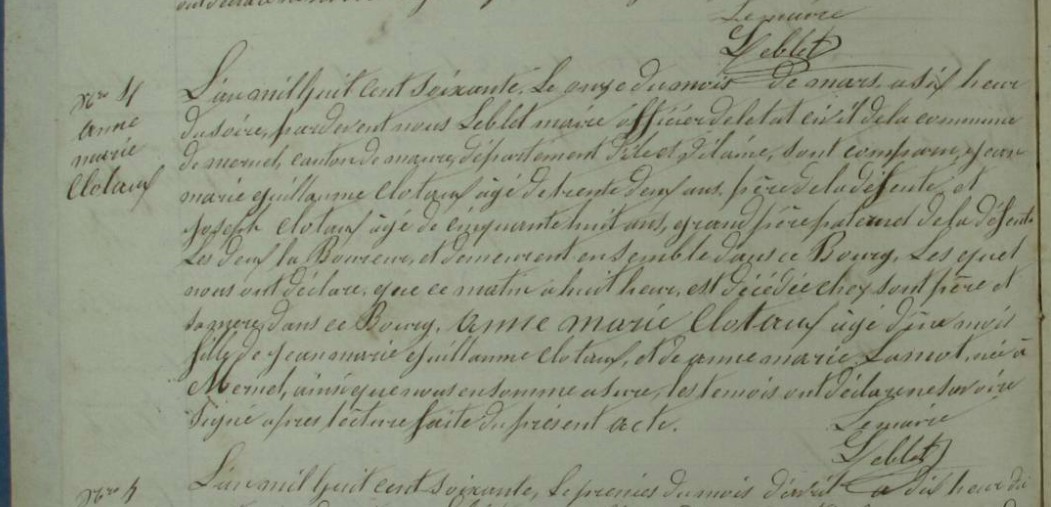 Le maire
Leblet
Nro 4
anne
marie
Clotaux
L'an mil huit cent soixante. Le onze du mois de mars, a six heur
du soire, pardevent nous Leblet maire officier de l'etat civil de la commune
de mernel, canton de maure, département d'ile et vilaine, sont comparu, jean
marie guillaume Clotaux âgé de trente deux ans, père de la défunte, et
joseph Clotaux âgé de cinquante huit ans, grand père paternel de la défunte
Les deux laboureur, et demeurent ensemble dans ce Bourg, Les quel
nous ont déclaré, que ce matin a huit heur, est décédée chez sont père et
sa mere, dans ce Bourg, anne marie Clotaux âgé d'un mois
fille de jean marie guillaume Clotaux, et de anne marie Lamot, née à
Mernel, ainsi que nous en somme assure, les temois ont déclare ne savoire
signé apres lecture faite du présent acte.
Le maire
Leblet
Nro 5
L'an mil huit cent soixante, Le premier du mois d'avril a dix heur du